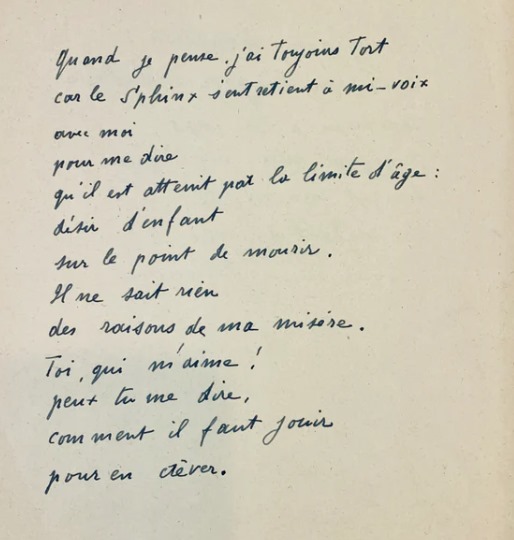 Quand je pense j'ai toujours tort
car le Sphinx s'entretient à mi-voix
avec moi
pour me dire
qu'il est atteint par la limite d'âge :
désir d'enfant
sur le point de mourir.
Il ne sait rien
des raisons de ma misère.
Toi, qui m'aime !
peux tu me dire,
comment il faut jouir
pour en crêver.